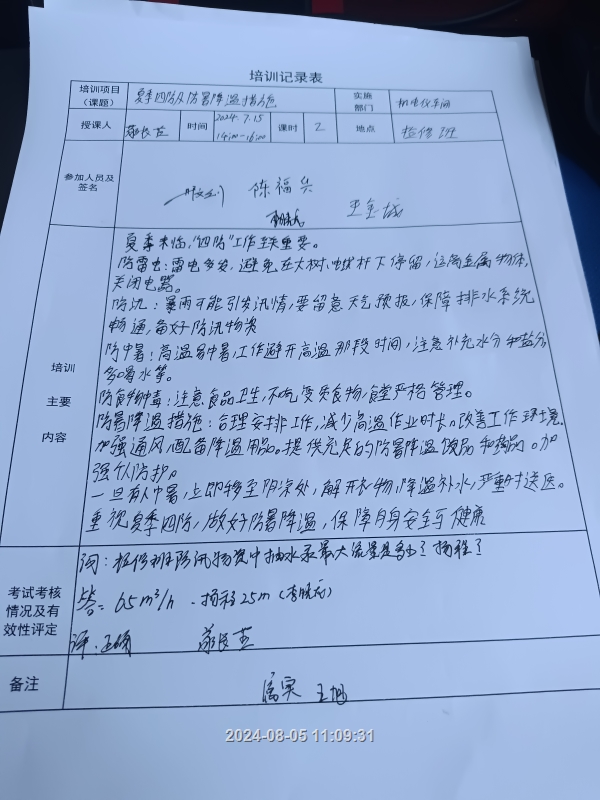 培训记录表
培训项目（课题） 夏季四防及防暑降温措施 实施部门 机电化车间
授课人 时间 2024.7.15 14:00-16:00 课时 2 地点 检修班
参加人员及签名
陈福兴
王金城
培训主要内容
夏季来临,"四防"工作至关重要。
防雷电:雷电多发,避免在大树、电杆下停留,远离金属物体,
关闭电器。
防汛:暴雨可能引发汛情,要留意天气预报,保障排水系统
畅通,备好防汛物资
防中暑:高温易中暑,工作避开高温那段时间,注意补充水分和盐分,
多喝水等。
防食物中毒:注意食品卫生,不吃变质食物,食堂严格管理。
防暑降温措施:合理安排工作,减少高温作业时长。改善工作环境,
加强通风,配备降温用品。提供充足的防暑降温饮品和药品。加
强个人防护。
一旦有人中暑,立即移至阴凉处,解开衣物,降温补水,严重时送医。
重视夏季四防,做好防暑降温,保障自身安全与健康
考试考核情况及有效性评定
问:检修班防汛物资中抽水泵最大流量是多少?扬程?
答:65m³/h、扬程25m(李晓龙)
评:正确
备注
属实 王旭
2024-08-05 11:09:31